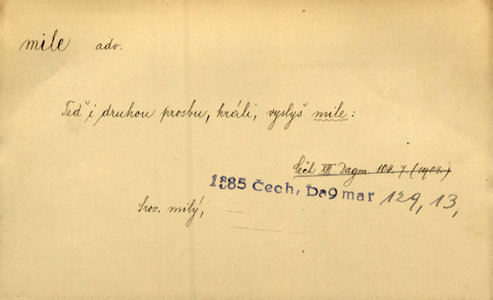 mile adv.
Teď i druhou prosbu, králi, vyslyš mile:
Čech XIII Dagm. 100. 7 (1903.)
1885 Čech, Dagmar 129, 13,
Srov. milý,